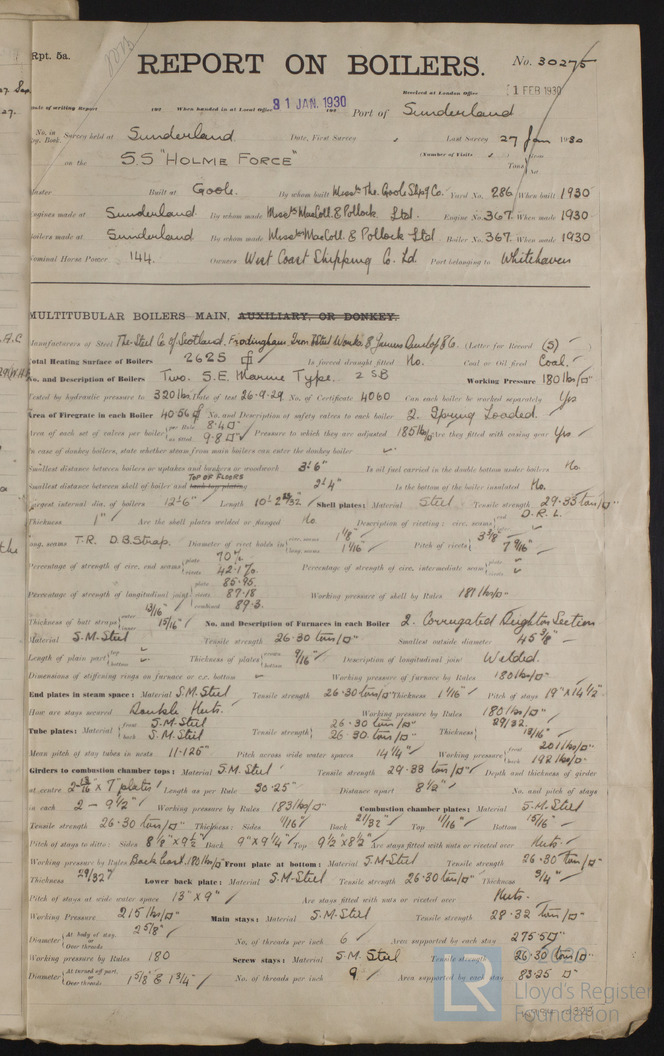 Rpt. 5a.
REPORT ON BOILERS.
No. 30275
Received at London Office
1 FEB 1930
Date of writing Report 192 When handed in at Local Office 31 JAN. 1930 192 Port of Sunderland
No. in Reg. Book. Survey held at Sunderland Date, First Survey Last Survey 27 Jan 1930
on the SS "HOLME FORCE" (Number of Visits Gross Tons Net
Master Built at Goole. By whom built Messrs The Goole Shpg Co. Yard No. 286 When built 1930
Engines made at Sunderland By whom made Messrs MacColl & Pollock Ltd. Engine No. 367. When made 1930
Boilers made at Sunderland By whom made Messrs MacColl & Pollock Ltd Boiler No. 367. When made 1930
Nominal Horse Power 144. Owners West Coast Shipping Co. Ld. Port belonging to Whitehaven
MULTITUBULAR BOILERS MAIN, AUXILIARY, OR DONKEY.
Manufacturers of Steel The Steel Co of Scotland. Frodingham Iron & Steel Works & James Dunlop & Co. (Letter for Record (S)
Total Heating Surface of Boilers 2625 Is forced draught fitted No. Coal or Oil fired Coal.
No. and Description of Boilers Two. S.E. Marine Type. 2 SB Working Pressure 180 lbs/□"
Tested by hydraulic pressure to 320 lbs Date of test 26-9-29 No. of Certificate 4060 Can each boiler be worked separately Yes
Area of Firegrate in each Boiler 40.56 No. and Description of safety valves to each boiler 2. Spring Loaded.
Area of each set of valves per boiler per Rule 8.40 as fitted 9.8 □" Pressure to which they are adjusted 185 lbs Are they fitted with easing gear Yes
In case of donkey boilers, state whether steam from main boilers can enter the donkey boiler
Smallest distance between boilers or uptakes and bunkers or woodwork 3'-6" Is oil fuel carried in the double bottom under boilers No.
Smallest distance between shell of boiler and TOP OF FLOORS tank top plating 2'-4" Is the bottom of the boiler insulated No.
Largest internal dia. of boilers 12'-6" Length 10'-2 23/32" Shell plates: Material Steel Tensile strength 29-33 tons/□"
Thickness 1" Are the shell plates welded or flanged No Description of riveting: circ. seams end D.R.L.
long. seams T.R. D.B. Strap. Diameter of rivet holes in circ. seams 1 1/8" long. seams 1 1/16" Pitch of rivets 3 3/8" 7 9/16"
Percentage of strength of circ. end seams plate 70% rivets 42.1% Percentage of strength of circ. intermediate seam plate rivets
Percentage of strength of longitudinal joint plate 85.95. rivets 87.18 combined 89.3. Working pressure of shell by Rules 181 lbs/□"
Thickness of butt straps outer 13/16" inner 15/16" No. and Description of Furnaces in each Boiler 2. Corrugated Deighton Section
Material S.M. Steel Tensile strength 26-30 tons/□" Smallest outside diameter 45 3/8"
Length of plain part top bottom Thickness of plates crown bottom 9/16" Description of longitudinal joint Welded.
Dimensions of stiffening rings on furnace or c.c. bottom Working pressure of furnace by Rules 180 lbs/□"
End plates in steam space: Material S.M. Steel Tensile strength 26-30 tons/□" Thickness 1 1/16" Pitch of stays 19" x 14 1/2"
How are stays secured Double Nuts. Working pressure by Rules 180 lbs/□"
Tube plates: Material front S.M. Steel back S.M. Steel Tensile strength 26-30 tons/□" 26-30 tons/□" Thickness 29/32 13/16"
Mean pitch of stay tubes in nests 11.125" Pitch across wide water spaces 14 1/4" Working pressure front 201 lbs/□" back 192 lbs/□"
Girders to combustion chamber tops: Material S.M. Steel Tensile strength 29-33 tons/□" Depth and thickness of girder
at centre 2-13/16" x 7" plates Length as per Rule 30.25" Distance apart 8 1/2" No. and pitch of stays
in each 2 - 9 1/2" Working pressure by Rules 183 lbs/□" Combustion chamber plates: Material S.M. Steel
Tensile strength 26-30 tons/□" Thickness: Sides 11/16" Back 21/32" Top 11/16" Bottom 15/16"
Pitch of stays to ditto: Sides 8 1/8" x 9 1/2" Back 9" x 9 1/4" Top 9 1/2" x 8 1/2" Are stays fitted with nuts or riveted over Nuts.
Working pressure by Rules Back Least. 180 lbs/□" Front plate at bottom: Material S.M. Steel Tensile strength 26-30 tons/□"
Thickness 29/32" Lower back plate: Material S.M. Steel Tensile strength 26-30 tons/□" Thickness 3/4"
Pitch of stays at wide water space 13" x 9" Are stays fitted with nuts or riveted over Nuts.
Working Pressure 215 lbs/□" Main stays: Material S.M. Steel Tensile strength 28-32 tons/□"
Diameter At body of stay, or Over threads 2 5/8" No. of threads per inch 6 Area supported by each stay 275.5 □"
Working pressure by Rules 180 Screw stays: Material S.M. Steel Tensile strength 26-30 tons/□"
Diameter At turned off part, or Over threads 1 5/8" & 1 3/4" No. of threads per inch 9 Area supported by each stay 83.25 □"
LR
2020
Lloyd's Register
Foundation